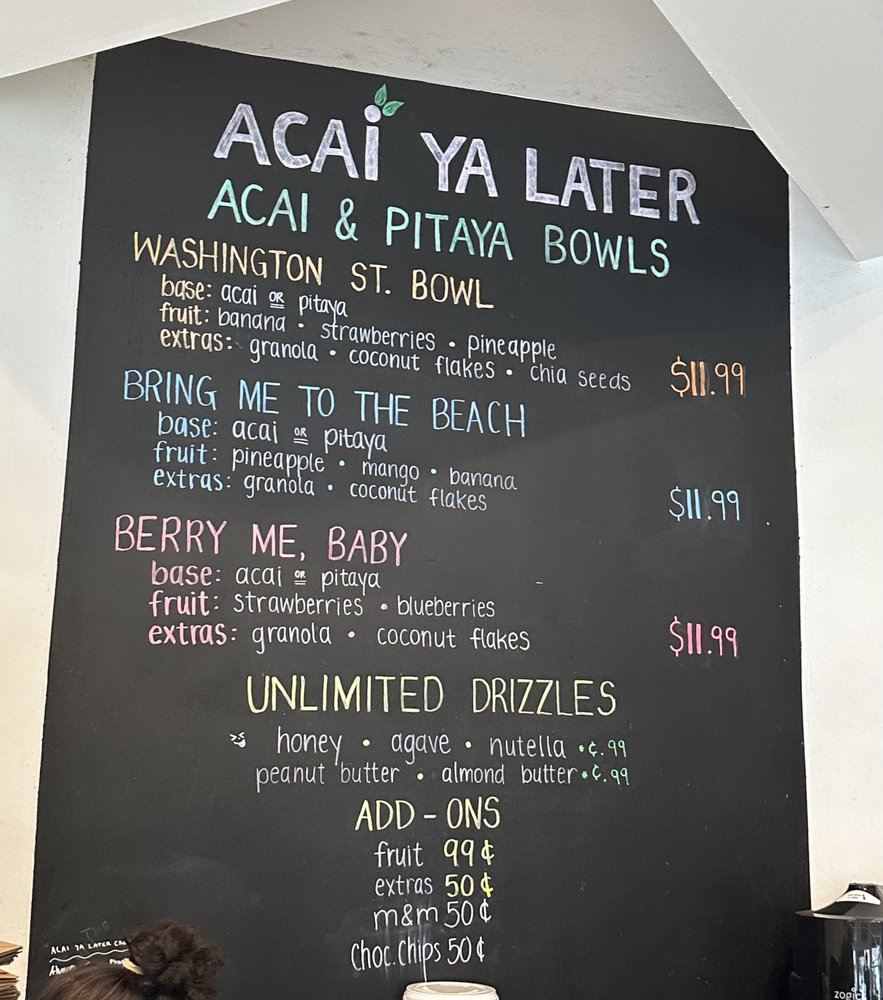 ACAI YA LATER
ACAI & PITAYA BOWLS
WASHINGTON ST. BOWL
base: acai OR pitaya
fruit: banana • strawberries • pineapple
extras: granola • coconut flakes • chia seeds $11.99
BRING ME TO THE BEACH
base: acai OR pitaya
fruit: pineapple • mango • banana
extras: granola • coconut flakes $11.99
BERRY ME, BABY
base: acai OR pitaya
fruit: strawberries • blueberries
extras: granola • coconut flakes $11.99
UNLIMITED DRIZZLES
honey • agave • nutella •¢.99
peanut butter • almond butter •¢.99
ADD-ONS
fruit 99¢
extras 50¢
m&m 50¢
Choc.Chips 50¢
ACAI YA LATER